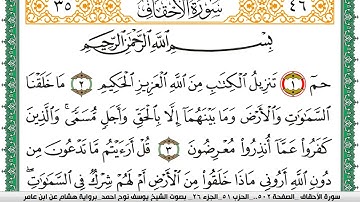 ٣٥ سُورَةُ الْأَحْقَافِ ٤٦
بِسْمِ اللَّهِ الرَّحْمَٰنِ الرَّحِيمِ
حمٓ ١ تَنزِيلُ الْكِتَابِ مِنَ اللَّهِ الْعَزِيزِ الْحَكِيمِ ٢ مَا خَلَقْنَا
السَّمَٰوَٰتِ وَالْأَرْضَ وَمَا بَيْنَهُمَا إِلَّا بِالْحَقِّ وَأَجَلٍ مُّسَمًّى ۚ وَالَّذِينَ
كَفَرُوا عَمَّا أُنذِرُوا مُعْرِضُونَ ٣ قُلْ أَرَءَيْتُم مَّا تَدْعُونَ مِن
دُونِ اللَّهِ أَرُونِي مَاذَا خَلَقُوا مِنَ الْأَرْضِ أَمْ لَهُمْ شِرْكٌ فِي السَّمَٰوَٰتِ ۖ
سورة الأحقاف الصفحة ٥٠٢ الحزب ٥١ الجزء ٢٦ بصوت الشيخ يوسف نوح احمد برواية هشام عن ابن عامر